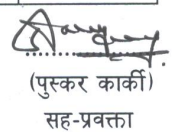 (पुस्कर कार्की)
सह-प्रवक्ता